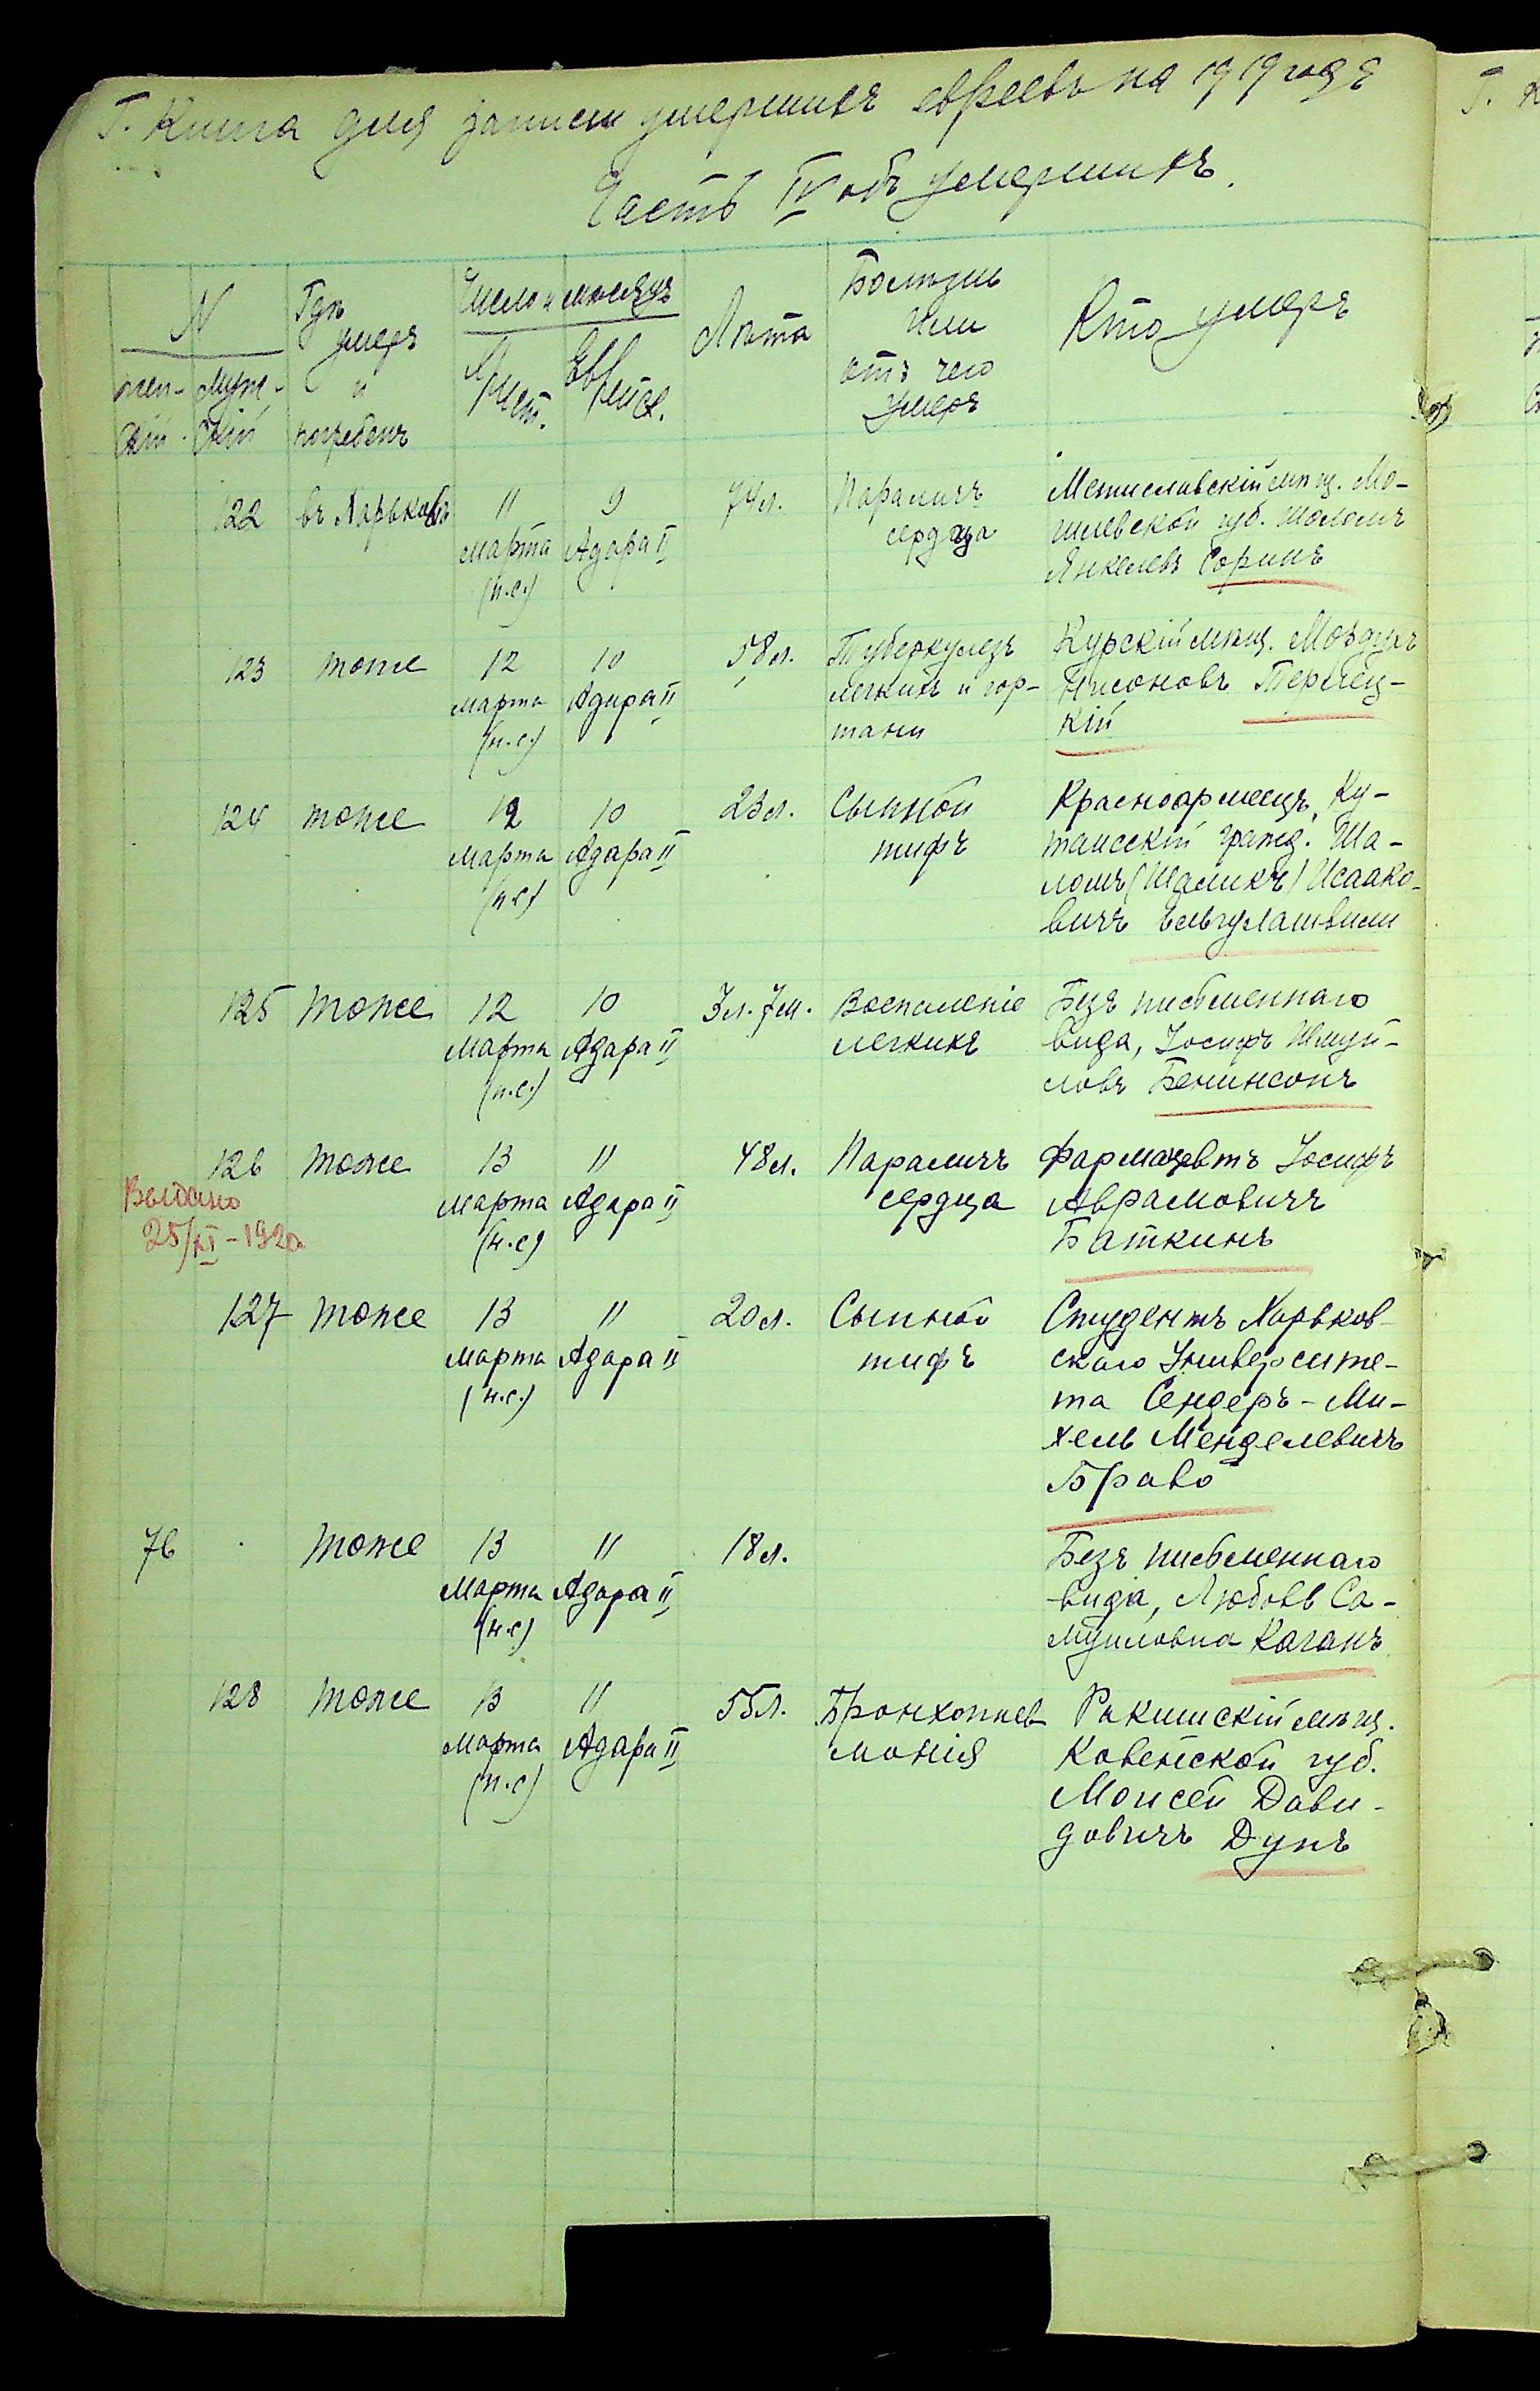 Г. Книга для записи умершихъ евреевъ на 1919 годъ
Часть IV объ умершихъ.
N
Гдѣ умеръ и погребенъ
Число и мѣсяцъ
Лѣта
Болѣзнь или отъ чего умеръ
Кто умеръ
жен-скій
Муж-скій
Христ.
Еврейск.
122 въ Харьковѣ 11 9 74 л. Параличъ Мстиславскій мѣщ. Мо-
Марта Адара II сердца гилевской губ. Шоломъ
(н.с.) Янкелевъ Соринъ
123 тоже 12 10 58 л. Туберкулезъ Курскій мѣщ. Мордухъ
Марта Адара II легкихъ и гор- Нисоновъ
(н.с.) тани кій
124 тоже 12 10 23 л. Сыпной Красноармеецъ, Ку-
Марта Адара II тифъ таисскій гражд. Ша-
(н.с) ломъ (Шаликъ) Исаако-
вичъ
125 тоже 12 10 3 л. 7 м. Воспаленіе Безъ письменнаго
Марта Адара II легкихъ вида, Іосифъ Шмуй-
(н.с.) ловъ Бенинсонъ
126 тоже 13 11 48 л. Параличъ Фармацевтъ Іосифъ
Выдано Марта Адара II сердца Аврамовичъ
25/XI-1920 (н.с) Баткинъ
127 тоже 13 11 20 л. Сыпной Студентъ Харьков-
Марта Адара II тифъ скаго Университе-
(н.с.) та Сендеръ-Ми-
хель Менделевичъ
Браво
76 тоже 13 11 18 л. Безъ письменнаго
Марта Адара II вида, Любовь Са-
(н.с) муиловна Каганъ
128 тоже 13 11 55 л. Бронхопнев- Ракишскій мѣщ.
Марта Адара II монія Ковенской губ.
(н.с) Моисей Дави-
довичъ Дунъ